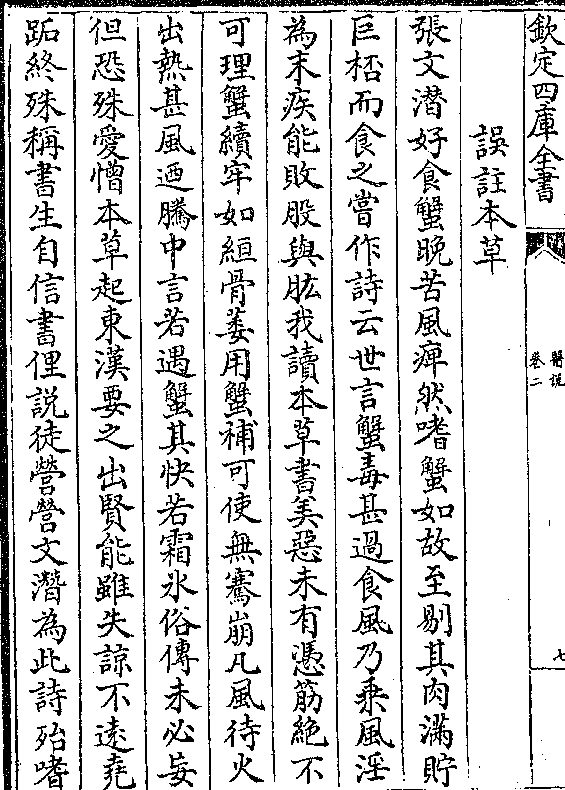 欽定四庫全書
醫說
卷二
七
誤註本草
張文潛好食蟹晚苦風痺然嗜蟹如故至剔其肉滿貯
巨桮而食之嘗作詩云世言蟹毒甚過食風乃乗風淫
為末疾能敗股與肱我讀本草書美惡未有憑筋絶不
可理蟹續牢如絙骨萎用蟹補可使無騫崩凡風待火
出熱甚風廼騰中言若遇蟹其快若霜氷俗傳未必妄
但恐殊愛憎本草起東漢要之出賢能雖失諒不逺堯
跖終殊稱書生自信書俚説徒營營文潛為此詩殆嗜